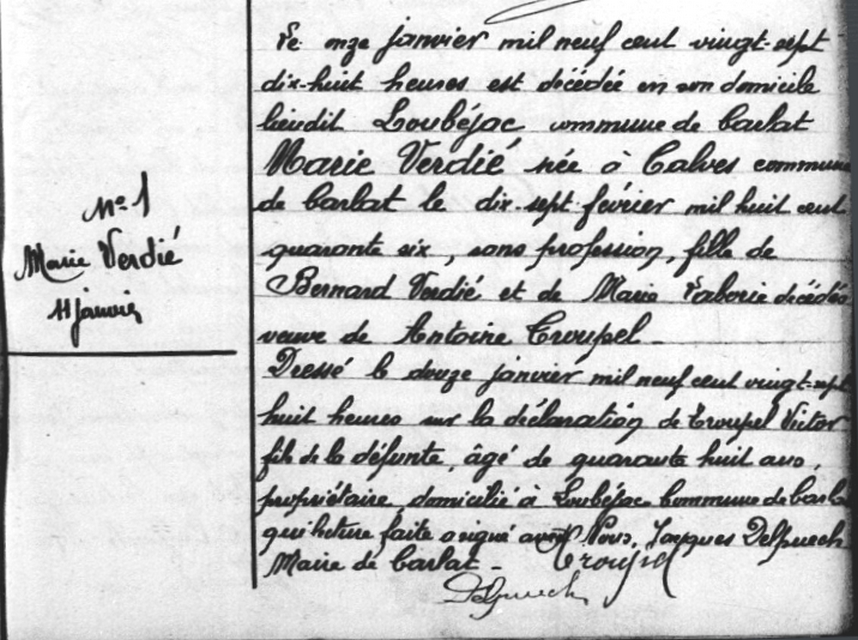 N° 1
Marie Verdié
11 janvier
Le onze janvier mil neuf cent vingt-sept
dix-huit heures est décédée en son domicile
lieudit Loubéjac commune de Carlat
Marie Verdié née à Calves commune
de Carlat le dix-sept février mil huit cent
quarante six, sans profession, fille de
Bernard Verdié et de Marie Laborie décédés
veuve de Antoine Croupel -
Dressé le douze janvier mil neuf cent vingt-sept
huit heures sur la déclaration de Troupel Victor
fils de la défunte, âgé de quarante huit ans,
propriétaire domicilié à Loubéjac commune de Carlat
qui lecture faite a signé avec Nous, Jacques Delpuech
Maire de Carlat - Troupel
Delpuech